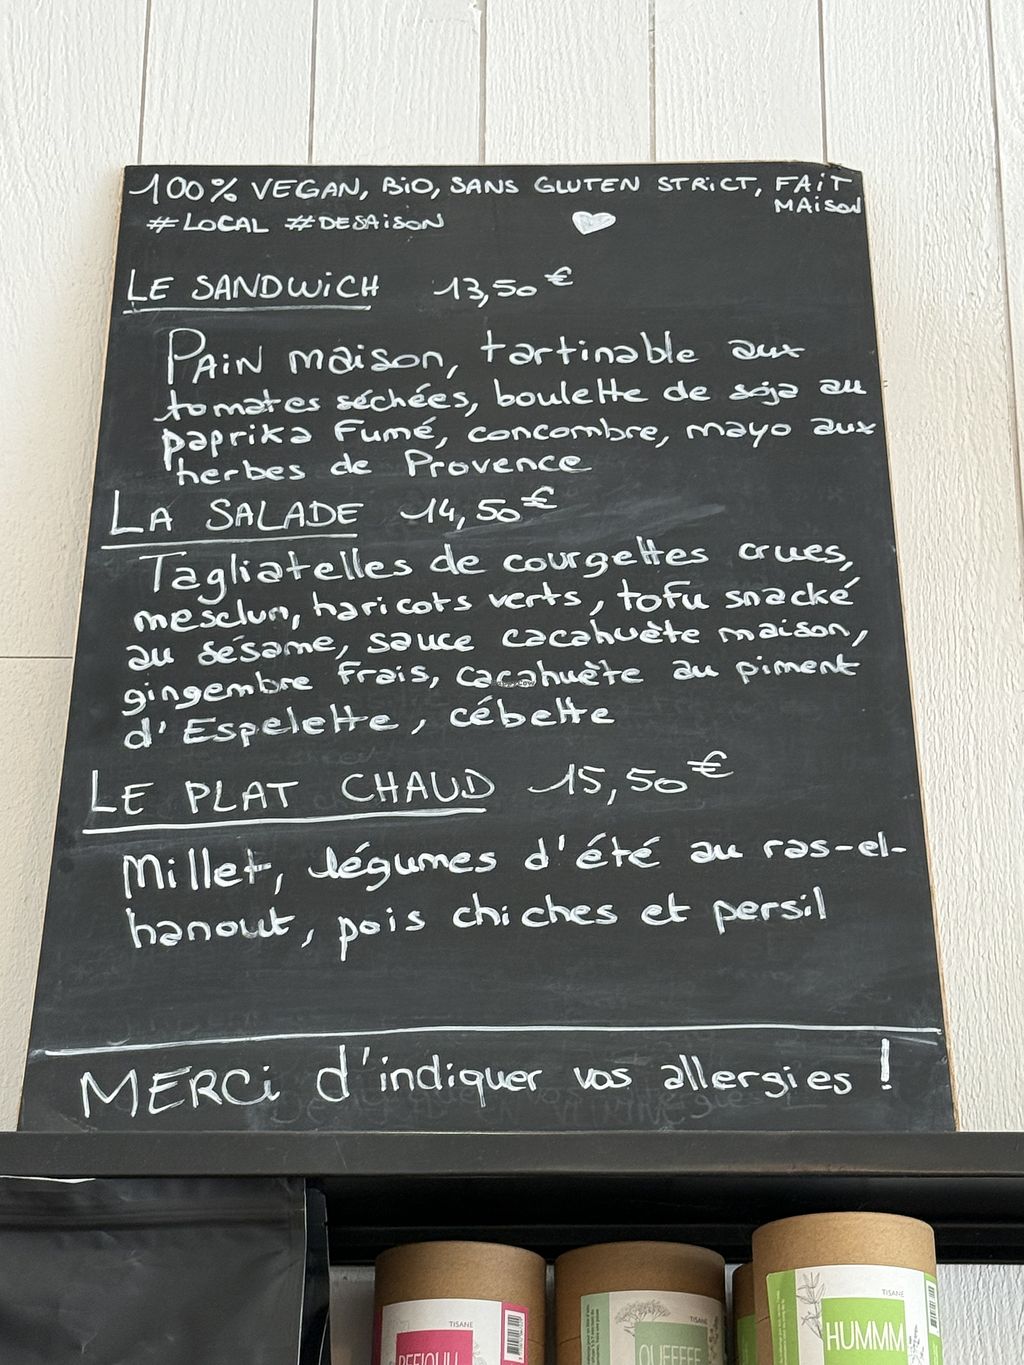 100% VEGAN, BiO, SANS GLUTEN STRiCT, FAiT
MAiSON
#LOCAL #DESAiSON
LE SANDWiCH 13,50€
PAiN maison, tartinable aux
tomates séchées, boulette de soja au
paprika Fumé, concombre, mayo aux
herbes de Provence
LA SALADE 14,50€
Tagliatelles de courgettes crues,
mesclun, haricots verts, toFu snacké
au sésame, sauce cacahuète maison,
gingembre Frais, cacahuète au piment
d'Espelette, cébette
LE PLAT CHAUD 15,50€
Millet, légumes d'été au ras-el-
hanout, pois chiches et persil
MERCi d'indiquer vos allergies !
TISANE
TISANE
TISANE
HUMMM